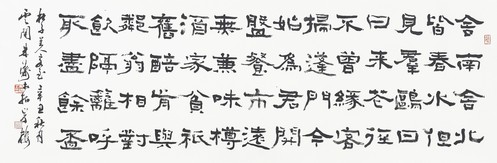 舍南舍北
皆春水但
見羣鷗日
日來花徑
不曾緣客
掃蓬門今
始為君開
盤飧市遠
無兼味樽
酒家貧祇
舊醅肯與
鄰翁相對
飲隔籬呼
取盡餘盃
杜子美客至辛丑秋月